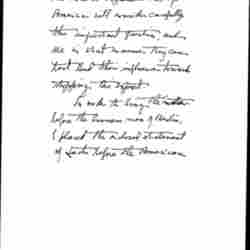 American will consider carefully
this important question, and
see in what manner they can
exert their influence toward
stopping the
In order to bring the matter
before the business men of Berlin,
I placed the enclosed statement
of facts before the American